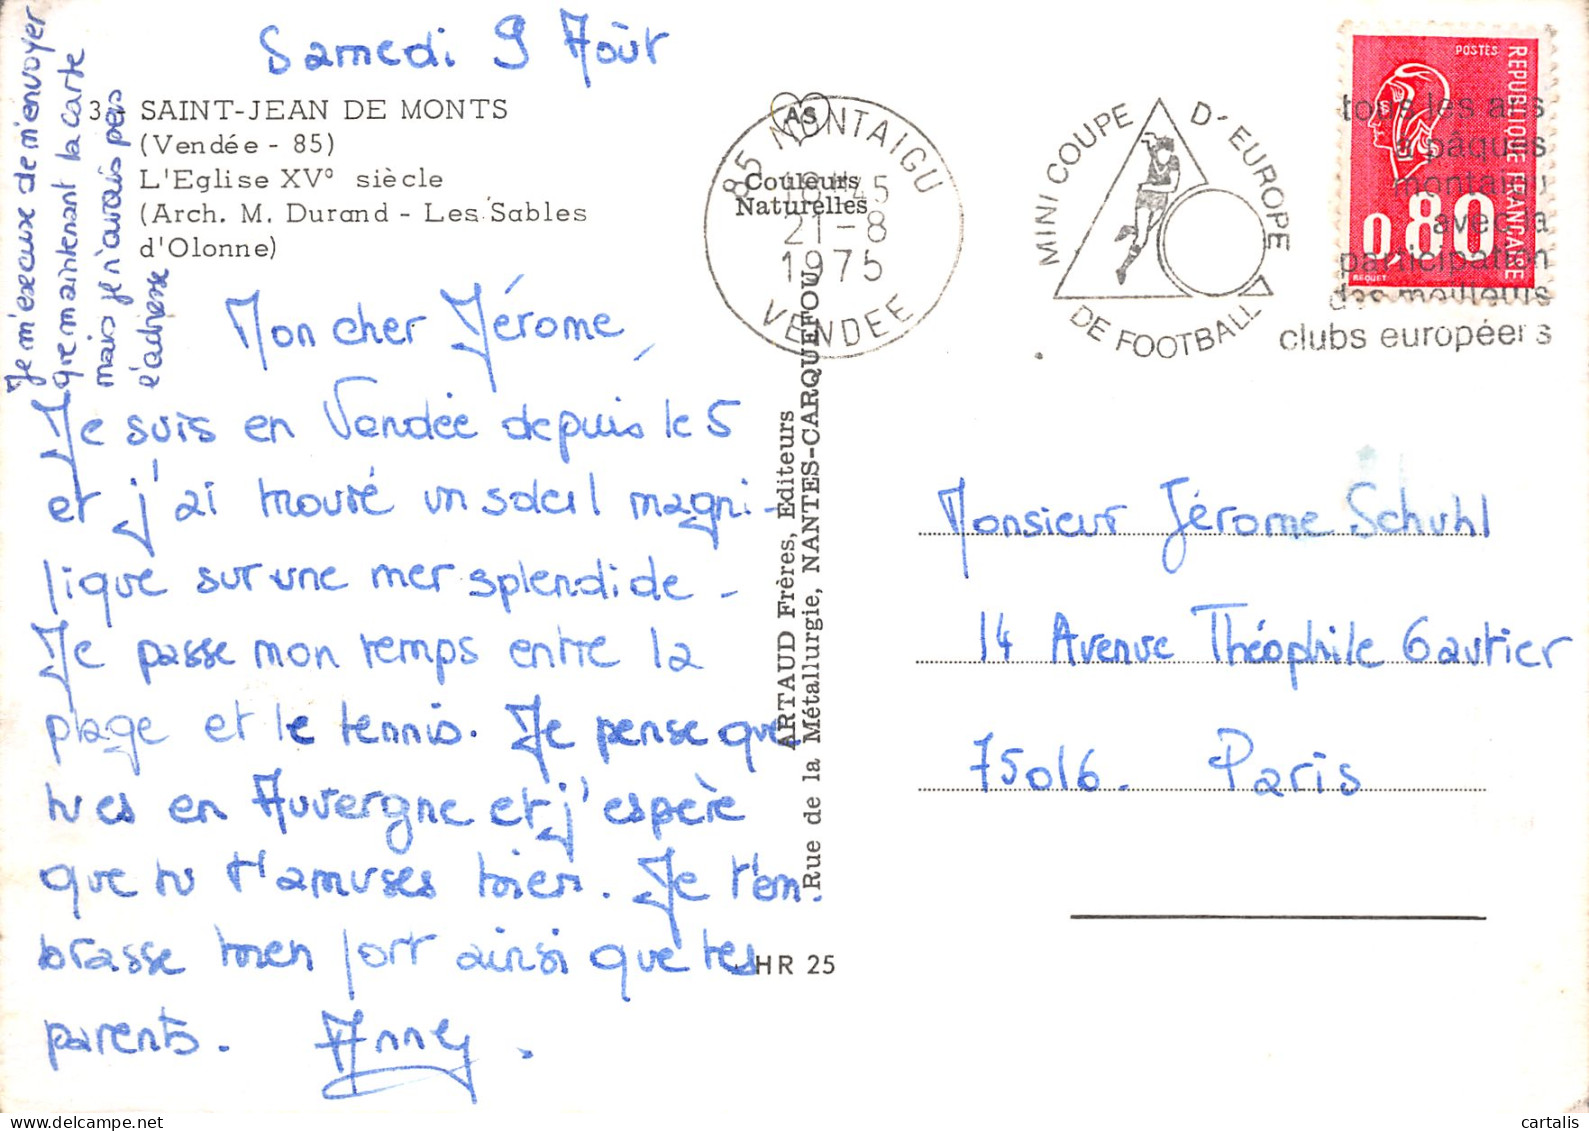 Samedi 9 Août
SAINT-JEAN DE MONTS
(Vendée - 85)
L'Eglise XVº siècle
(Arch. M. Durand - Les Sables
d'Olonne)
Je m'excuse de n'envoyer
que maintenant la carte
mais je n'avais pas
l'adresse
Mon cher Jérome,
Je suis en Vendée depuis le 5
et j'ai trouvé un soleil magni-
fique sur une mer splendide -
Je passe mon temps entre la
plage et le tennis. Je pense que
tu es en Auvergne et j'espère
que tu t'amuses bien. Je t'em-
brasse bien fort ainsi que tes
parents. Anny.
AS
Couleurs
Naturelles
ARTAUD Frères, Editeurs
Rue de la Métallurgie, NANTES-CARQUEFOU
HR 25
85 MONTAIGU
21-8
1975
VENDEE
MINI COUPE D'EUROPE
DE FOOTBALL
tous les ans
à pâques
montaigu
avec la
participation
des meilleurs
clubs européens
POSTES
REPUBLIQUE FRANÇAISE
0,80
BEQUET
Monsieur Jérome Schuhl
14 Avenue Théophile Gautier
75016 - Paris
cartalis